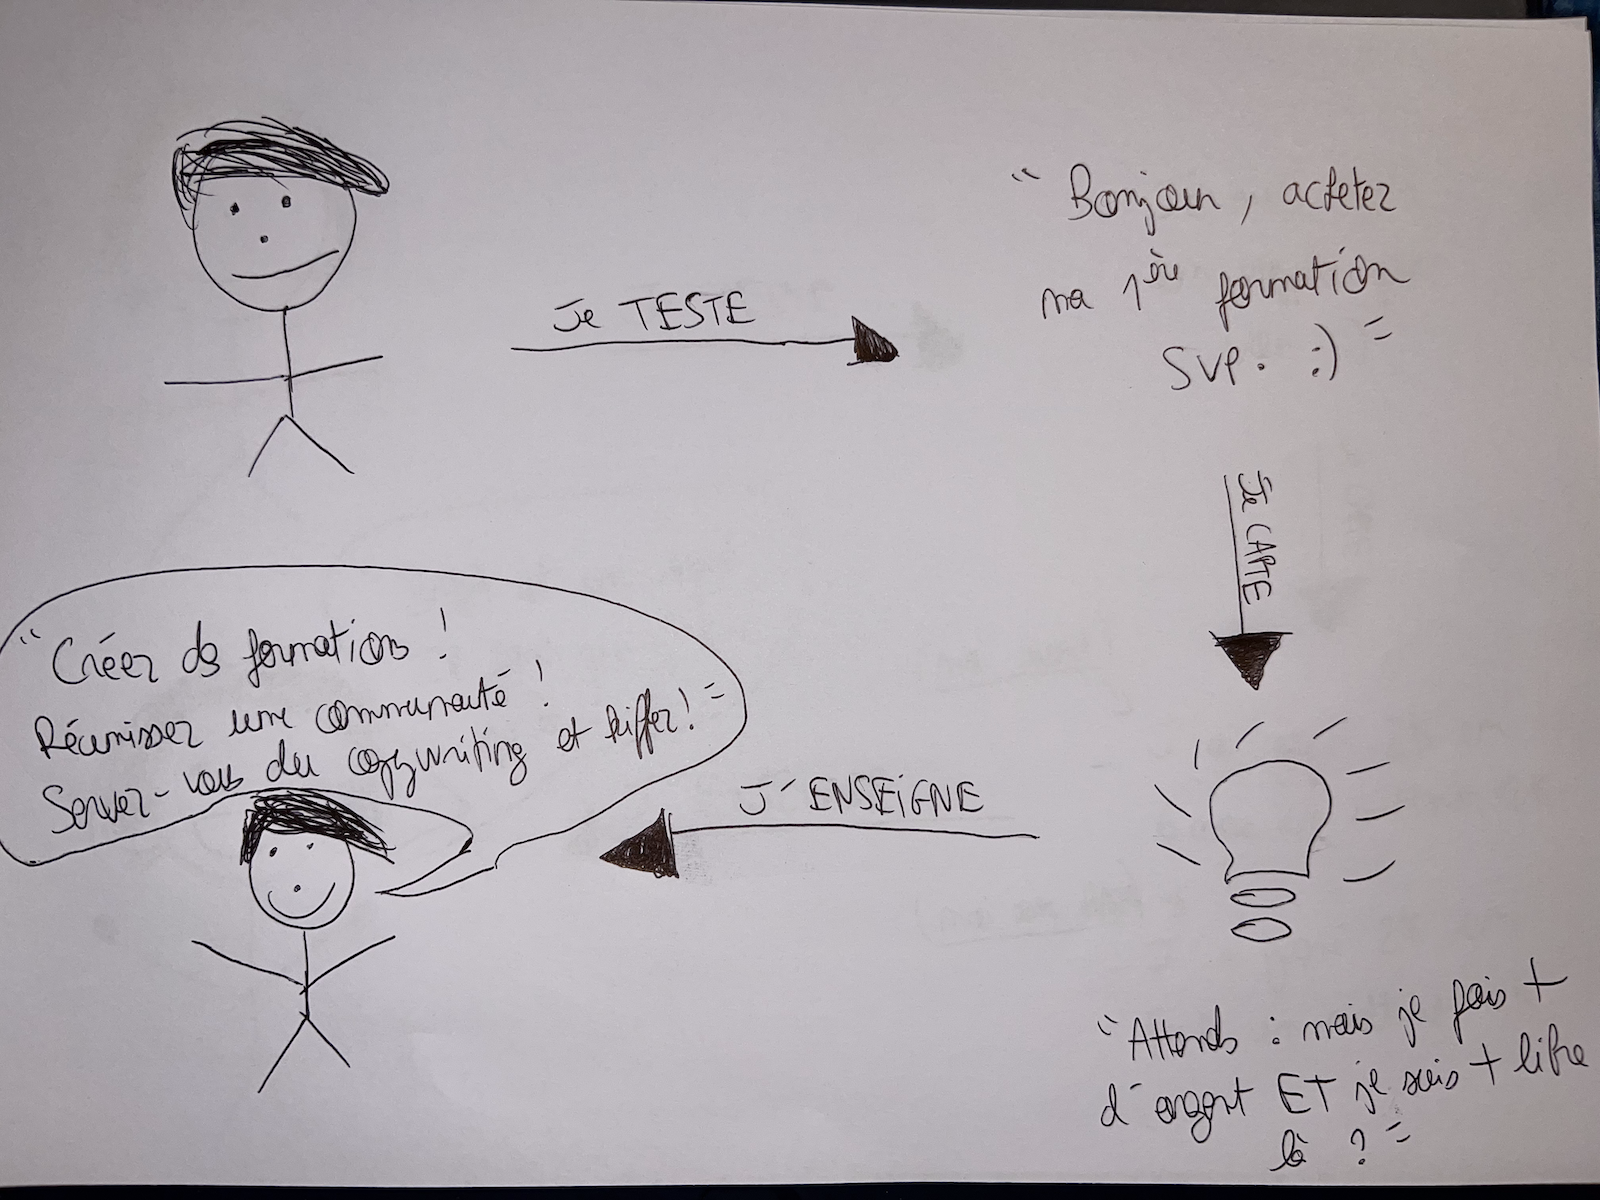 Je TESTE
" Bonjour, achetez
ma 1ère formation
SVP. :) "
Je CAPTE
"Attends : mais je fais +
d'argent ET je suis + libre
là ? "
J'ENSEIGNE
" Créez des formations !
Réunissez une communauté !
Servez-vous du copywriting et kiffez ! "